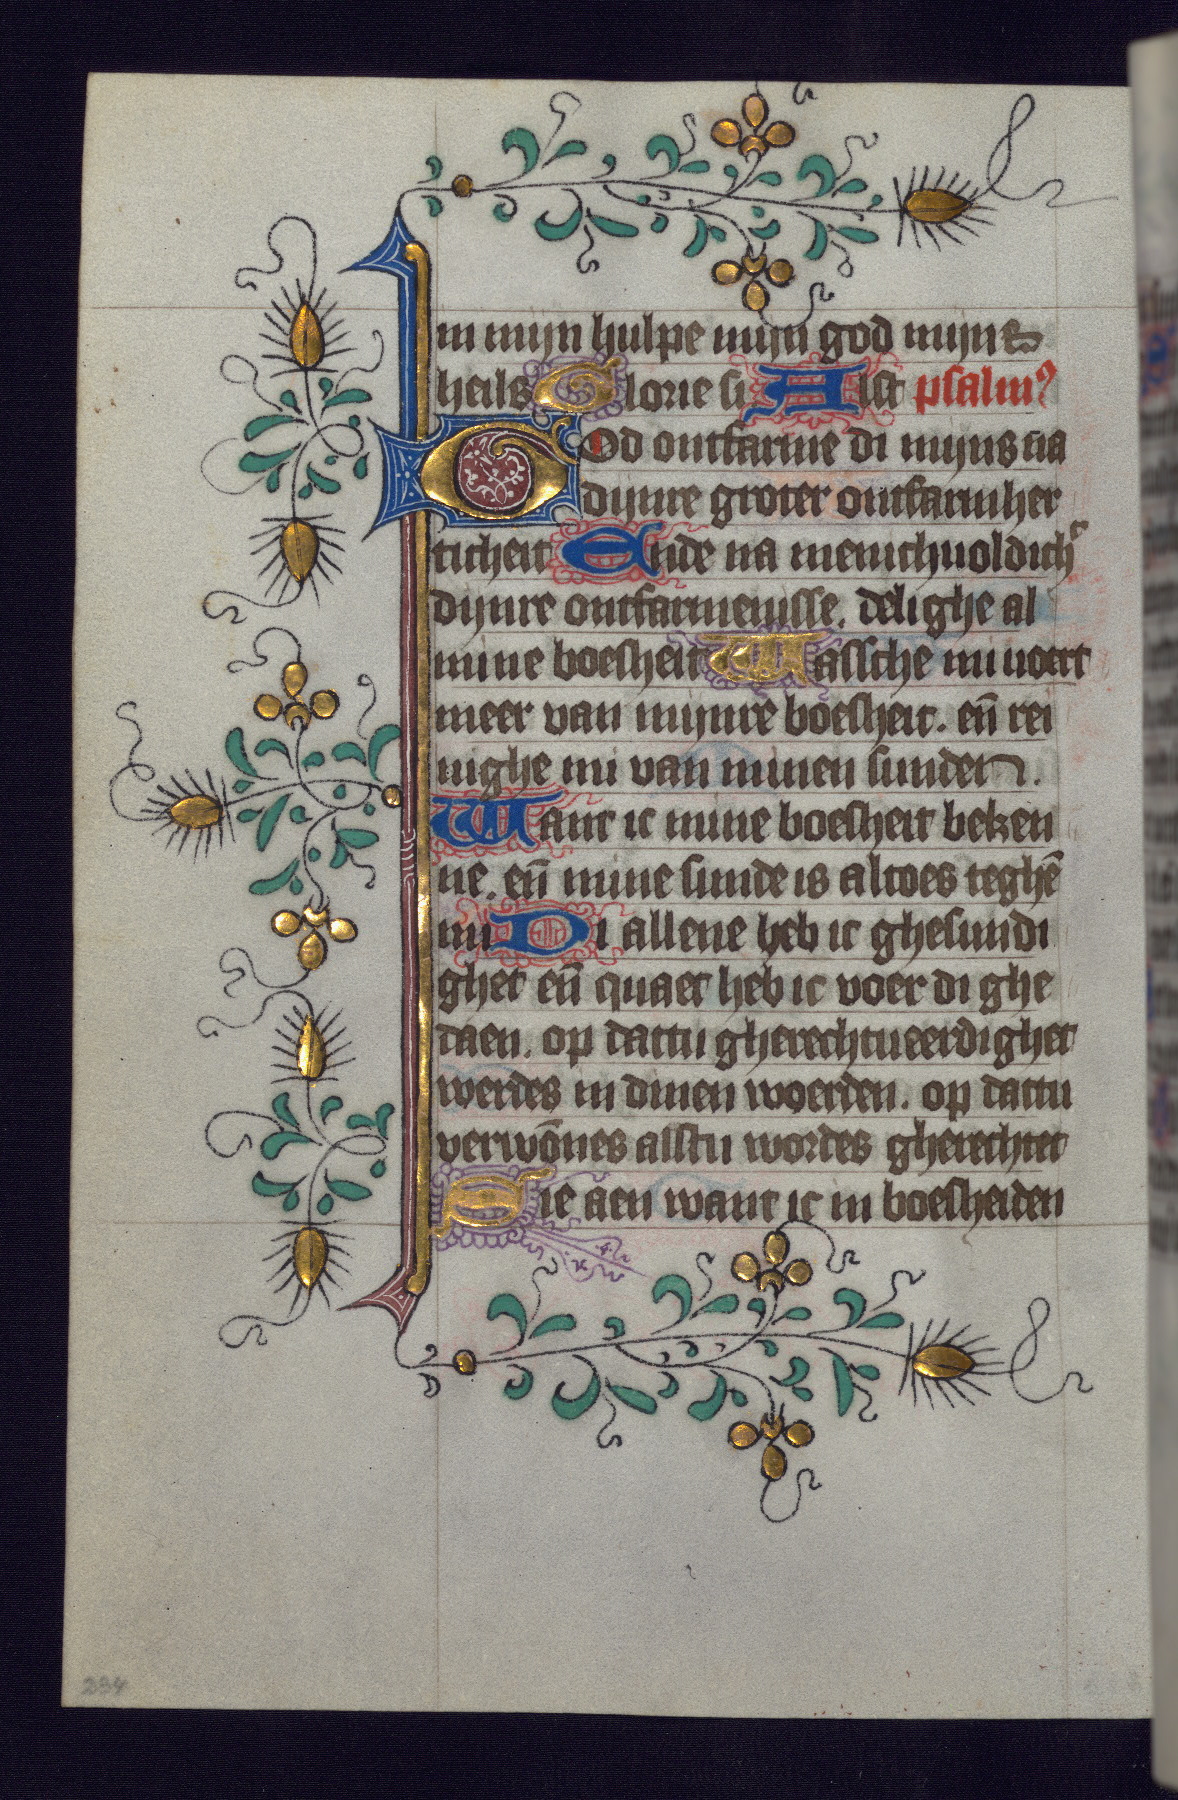 in mijn hulpe mijn god mijns
heils Glorie si Alst psalm⁹
God ontfarme di mijns na
dijnre groter ontfarmher
ticheit Ende na menichuoldich
dijnre ontfarmenisse. delighe al
mine boesheit Wassche mi voert
meer van mijnre boesheit. en̄ rei
nighe mi van minen sunden.
Want ic mine boesheit beken
ne. en̄ mine sunde is altoes teghē
mi Di allene heb ic ghesundi
ghet en̄ quaet heb ic voer di ghe
daen. op dattu gherechtueerdighet
werdes in dinen woerden. op dattu
verwōnes alstu wordes gherechtet
Sie aen want ic in boesheiden
234